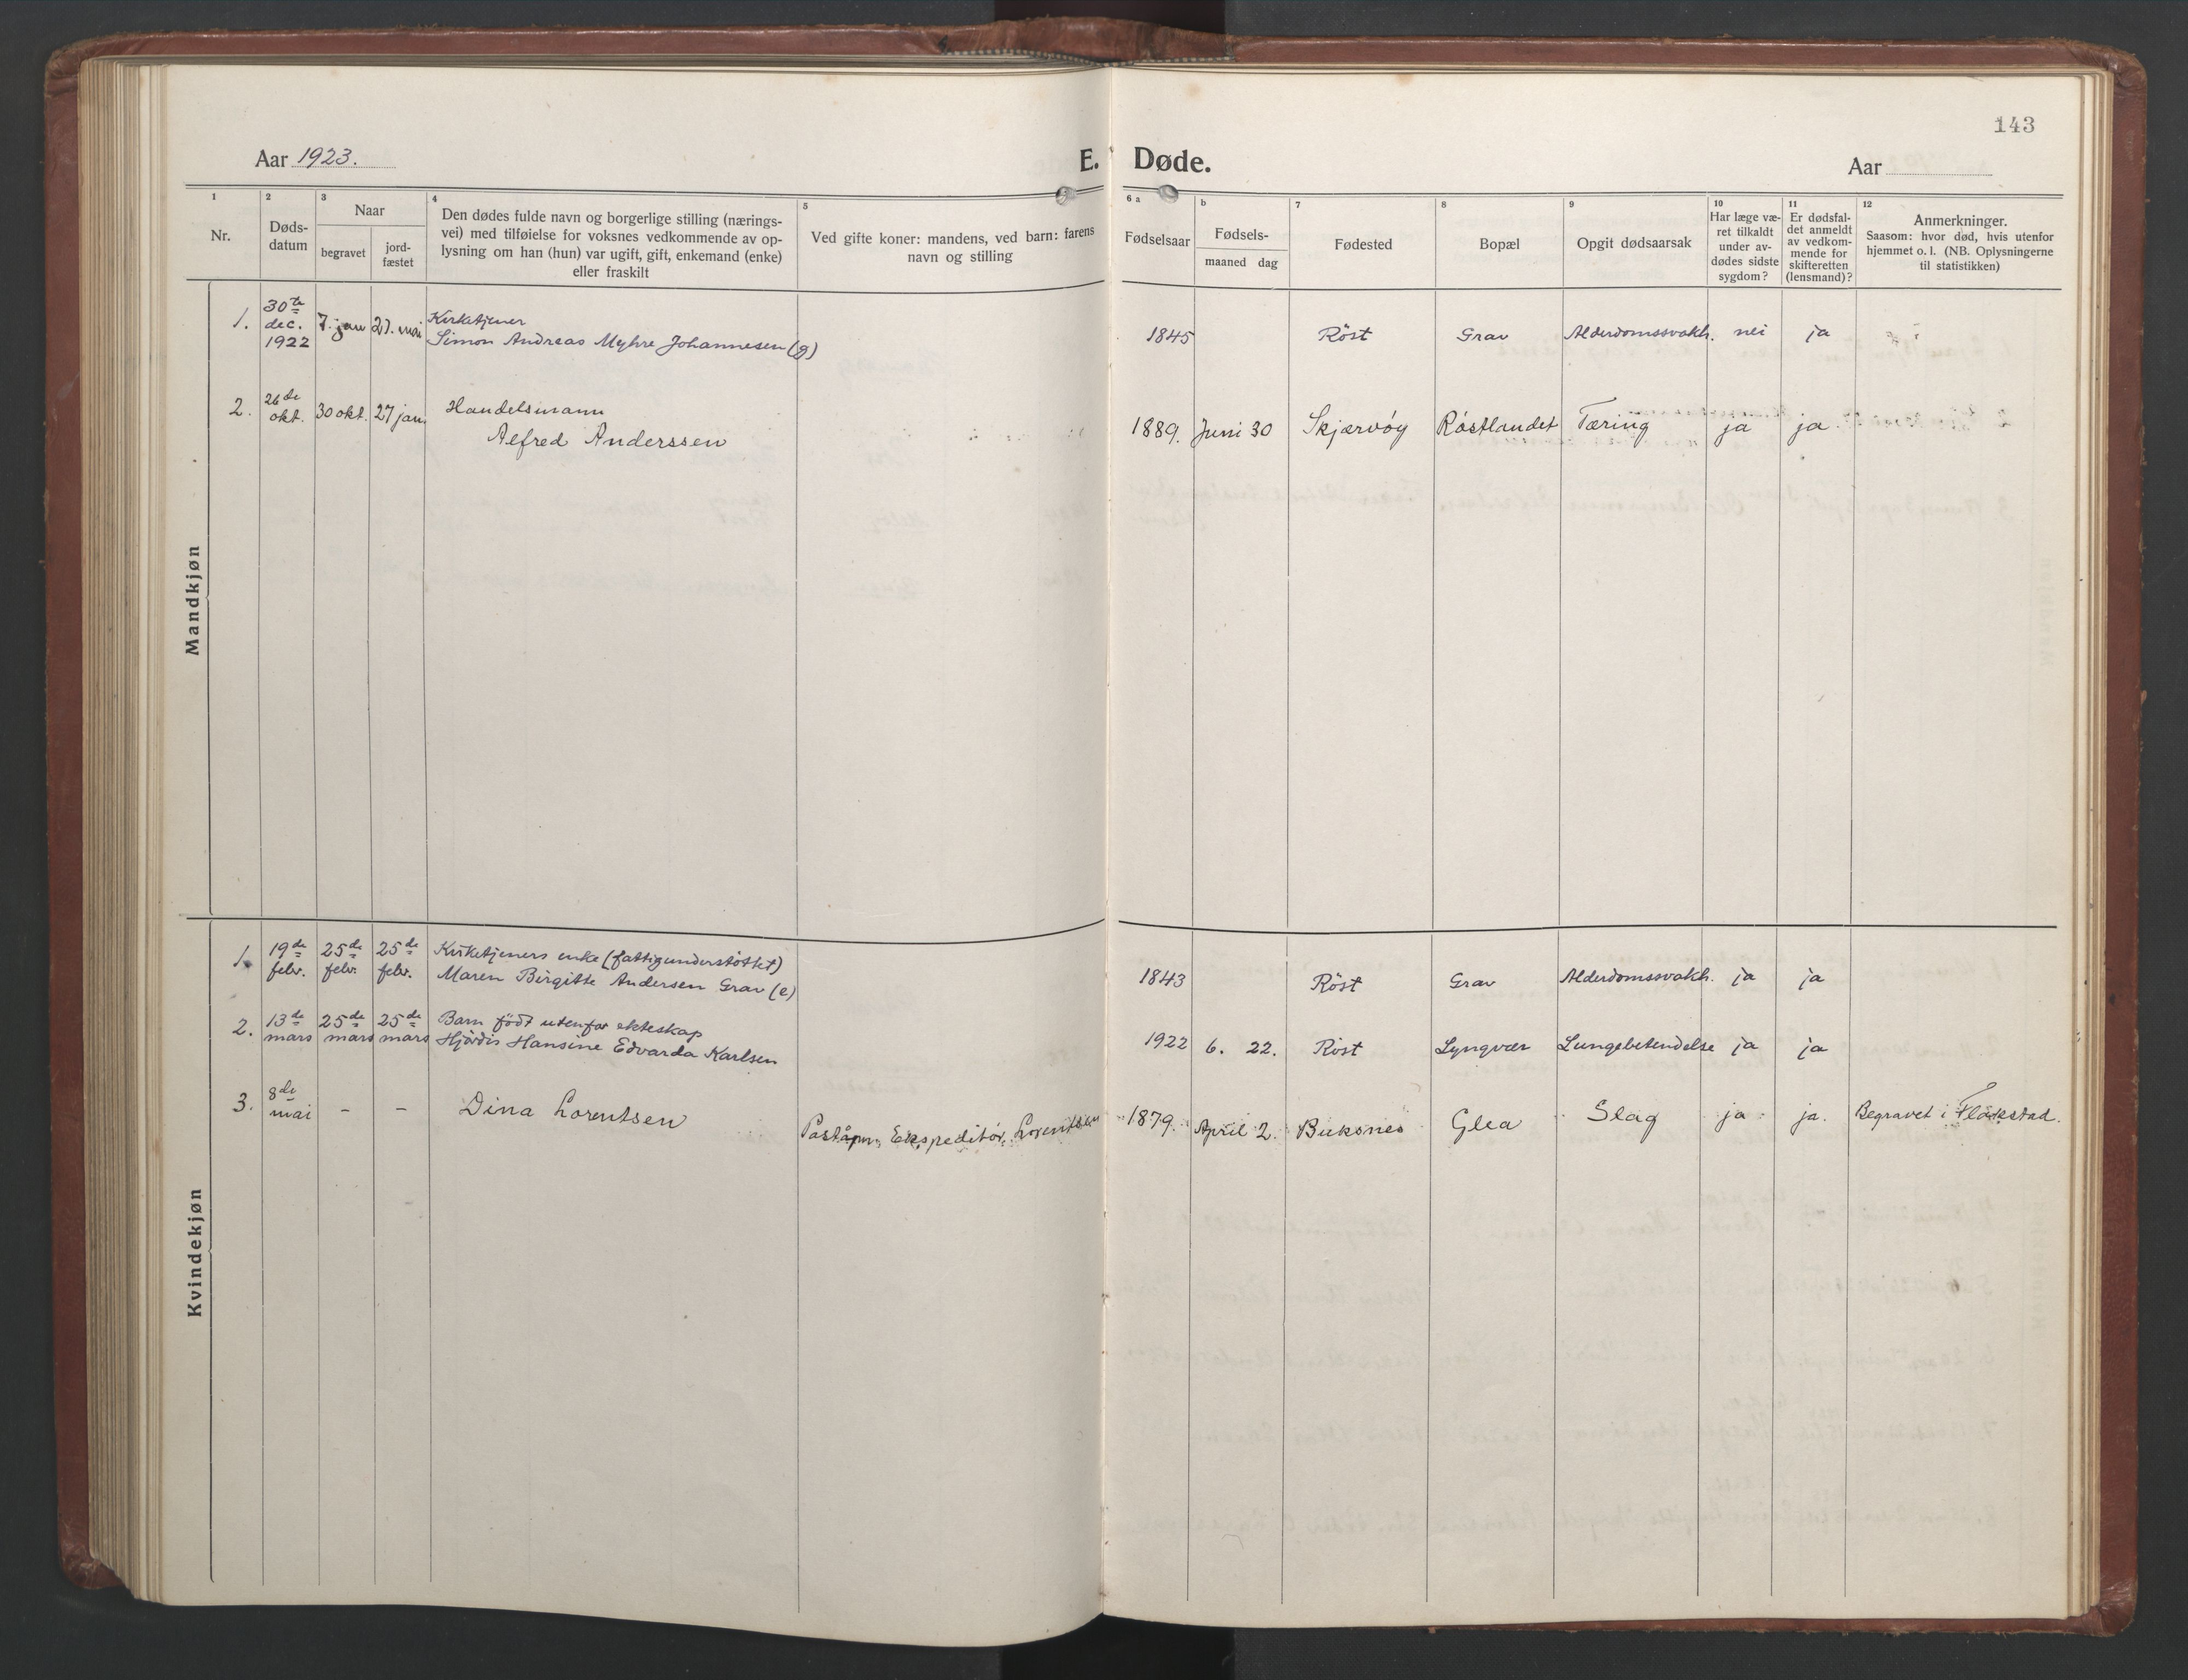 143
Aar 1923.
E. Døde.
Aar
1
2
3
4
5
6 a
b
7
8
9
10
11
12
Nr.
Døds-
datum
Naar
begravet
jord-
fæstet
Den dødes fulde navn og borgerlige stilling (nærings-
vei) med tilføielse for voksnes vedkommende av op-
lysning om han (hun) var ugift, gift, enkemand (enke)
eller fraskilt
Ved gifte koner: mandens, ved barn: farens
navn og stilling
Fødselsaar
Fødsels-
maaned dag
Fødested
Bopæl
Opgit dødsaarsak
Har læge væ-
ret tilkaldt
under av-
dødes sidste
sygdom?
Er dødsfal-
det anmeldt
av vedkom-
mende for
skifteretten
(lensmand)?
Anmerkninger.
Saasom: hvor død, hvis utenfor
hjemmet o. l. (NB. Oplysningerne
til statistikken)
Mandkjøn
1. 30te dec. 1922 7. jan 27. mai Kirketjener
Simon Andreas Myhre Johannesen (g) 1845 Röst Grav Alderdomssvakh. nei ja
2. 26de okt. 30 okt. 27 jan. Handelsmann
Alfred Anderssen 1889. Juni 30 Skjærvöy Röstlandet Tæring ja ja
Kvindekjøn
1. 19de febr. 25de febr. 25de febr. Kirketjeners enke (fattigunderstöttet)
Maren Birgitte Andersen Grav (e) 1843 Röst Grav Alderdomssvakh. ja ja
2. 13de mars 25de mars 25de mars Barn födt utenfor ekteskap
Hjördis Hansine Edvarda Karlsen 1922 6. 22. Röst Lyngvær Lungebetendelse ja ja
3. 8de mai - - Dina Lorentsen Poståpn. Ekspeditör Lorentsen 1879. April 2. Buksnes Glea Slag ja ja. Begravet i Flakstad.